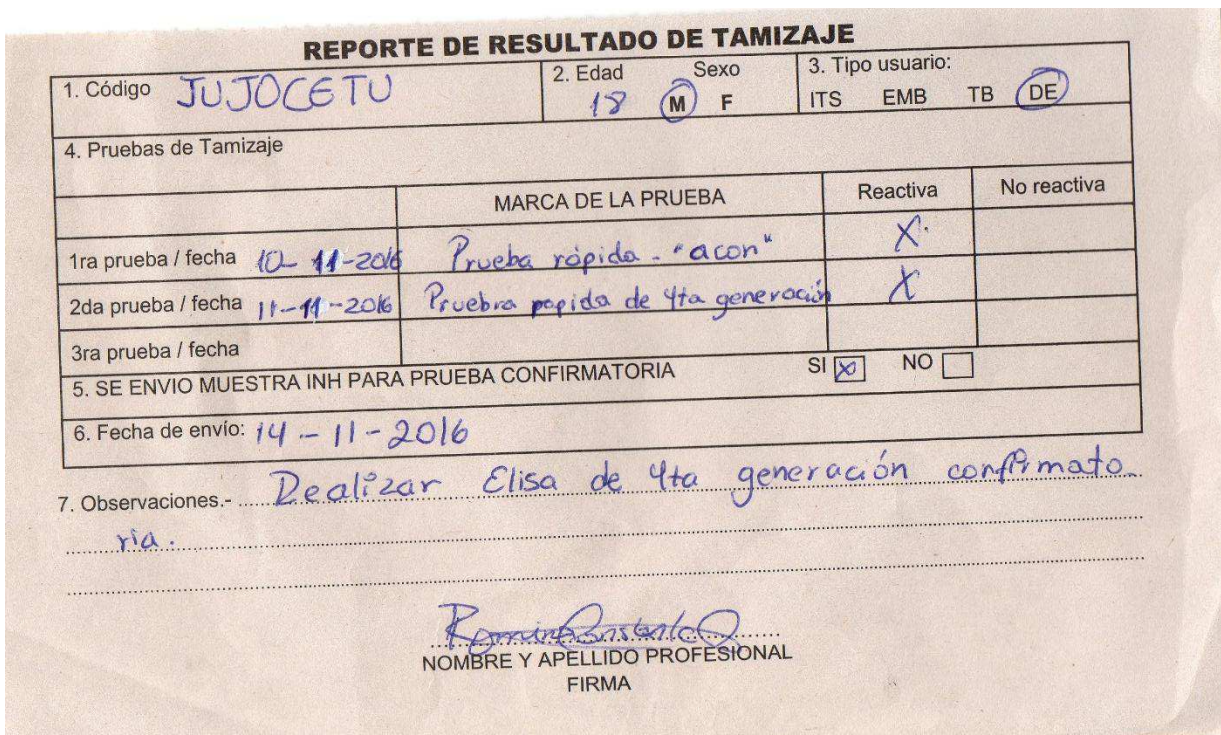 REPORTE DE RESULTADO DE TAMIZAJE
1. Código JUJOCETU 2. Edad 18 Sexo M F 3. Tipo usuario: ITS EMB TB DE
4. Pruebas de Tamizaje
MARCA DE LA PRUEBA Reactiva No reactiva
1ra prueba / fecha 10-11-2016 Prueba rápida - "acon" X
2da prueba / fecha 11-11-2016 Pruebra papida de 4ta generación X
3ra prueba / fecha
5. SE ENVIO MUESTRA INH PARA PRUEBA CONFIRMATORIA SI X NO
6. Fecha de envío: 14-11-2016
7. Observaciones.- Dealizar Elisa de 4ta generación confirmato-
ria.
NOMBRE Y APELLIDO PROFESIONAL
FIRMA